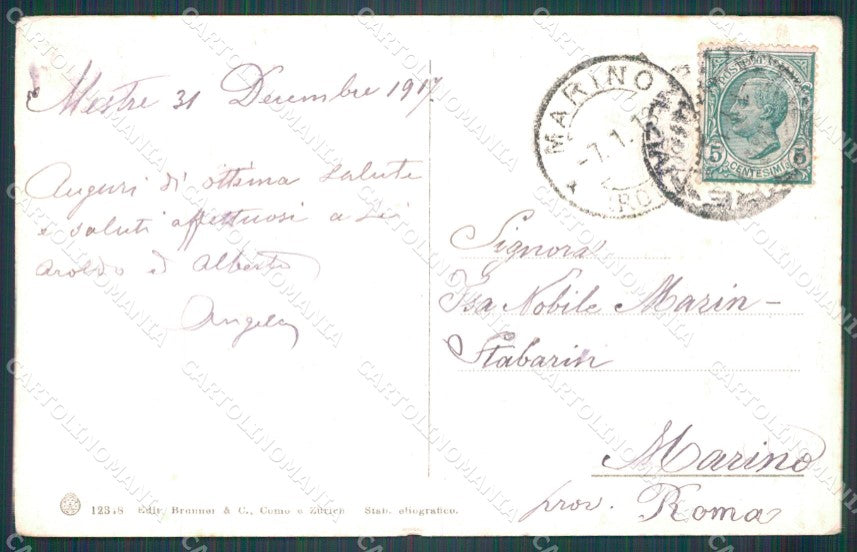 Mestre 31 Decembre 1917
Auguri di ottima salute
e saluti affettuosi a Lei
Aroldo ed Alberto
Angela
MARINO
-7.1.1
(RO
POSTE ITALIANE
5 CENTESIMI 5
Signora
Isa Nobile Marin-
Stabarin
Marino
prov. Roma
12348 Edit. Brunner & C., Como e Zürich Stab. eliografico.
CARTOLINOMANIA